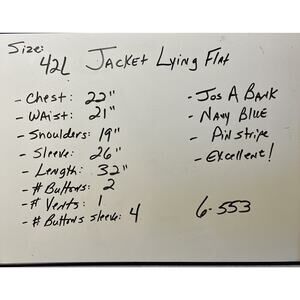 Size:
42L Jacket Lying Flat
- Chest: 22"
- Waist: 21"
- Shoulders: 19"
- Sleeve: 26"
- Length: 32"
- # Buttons: 2
- # Vents: 1
- # Buttons sleeve: 4
- Jos A Bank
- Navy Blue
- Pinstripe
- Excellent!
6-553